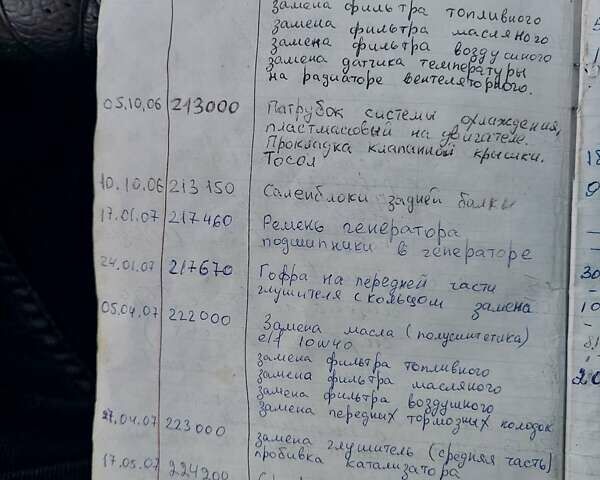 замена фильтра топливного
замена фильтра масляного
замена фильтра воздушного
замена датчика температуры
на радиаторе вентеляторного.
05.10.06 213000 Патрубок системы охлаждения,
пластмасовый на двигателе.
Прокладка клапанной крышки.
Тосол
10.10.06 213150 Саленблоки задней балки
17.01.07 217460 Ремень генератора
подшипники в генераторе
24.01.07 217670 Гофра на передней части
глушителя с кольцом замена
05.04.07 222000 Замена масла (полусинтетика)
elf 10w40
замена фильтра топливного
замена фильтра масляного
замена фильтра воздушного
замена передных тормозных колодок
27.04.07 223000 замена глушитель (средняя часть)
пробивка катализатора
17.05.07 224200